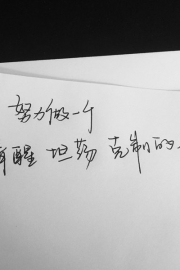 努力做一个
醒 坦荡 克制的